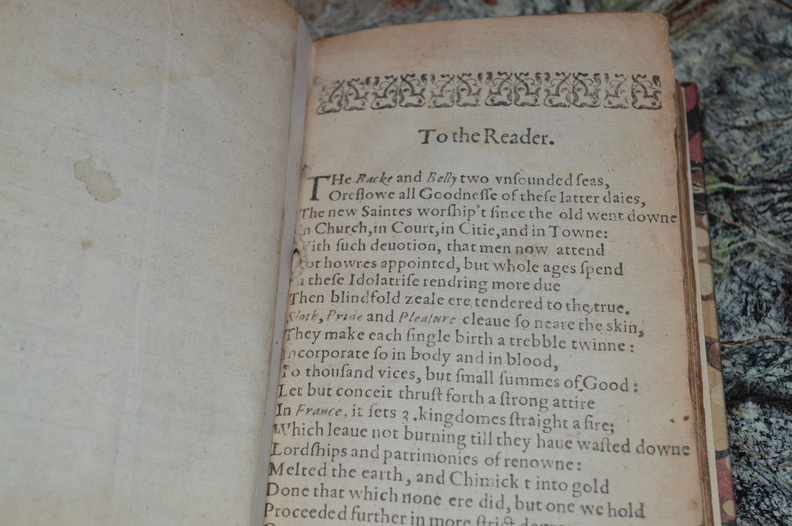 To the Reader.
THe Backe and Belly two vnſounded ſeas,
Oreflowe all Goodneſſe of theſe latter daies,
The new Saintes worſhip't ſince the old went downe
In Church, in Court, in Citie, and in Towne:
With ſuch deuotion, that men now attend
Not howres appointed, but whole ages ſpend
In theſe Idolatriſe rendring more due
Then blindfold zeale ere tendered to the true.
Sloth, Pride and Pleaſure cleaue ſo neare the skin,
They make each ſingle birth a trebble twinne:
Incorporate ſo in body and in blood,
To thouſand vices, but ſmall ſummes of Good:
Let but conceit thruſt forth a ſtrong attire
In France, it ſets 3. kingdomes ſtraight a fire;
Which leaue not burning till they haue waſted downe
Lordſhips and patrimonies of renowne:
Melted the earth, and Chimick t into gold
Done that which none ere did, but one we hold
Proceeded further in more ſtrict